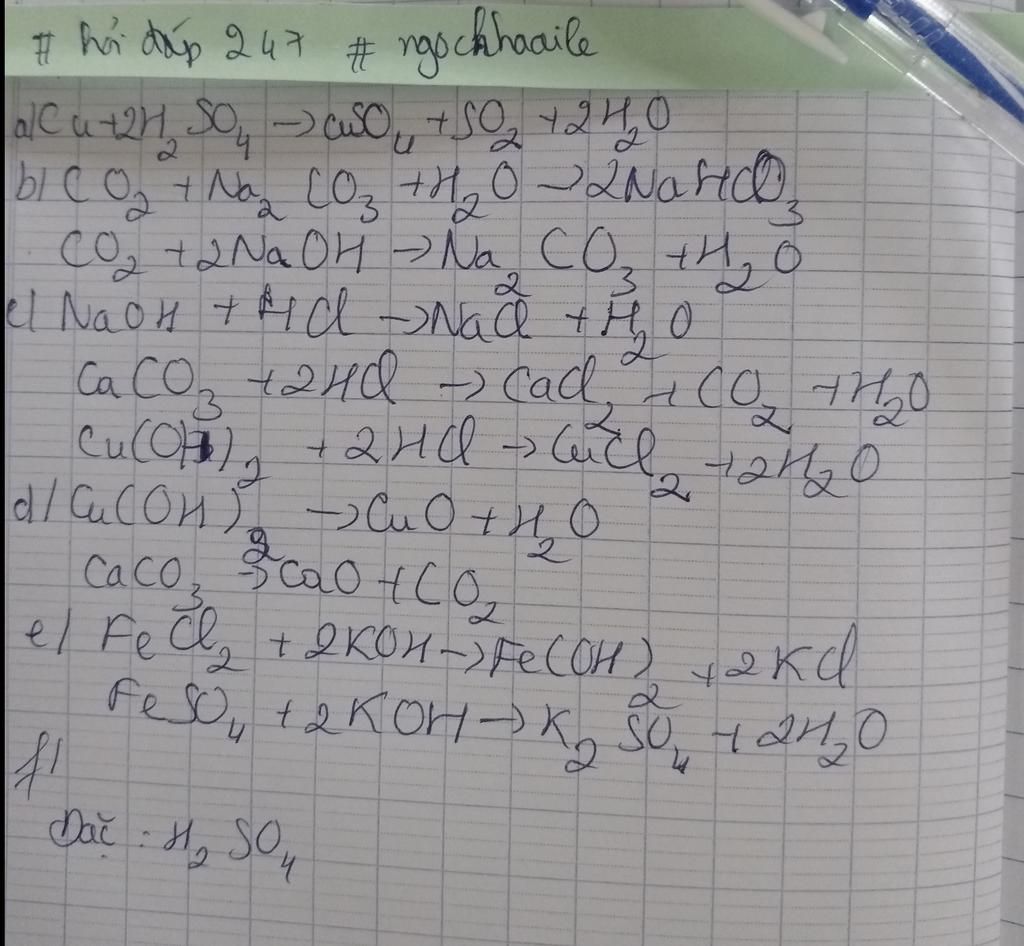 # hỏi đáp 247 # ngockhaaile
a) Cu + 2H₂SO₄ → CuSO₄ + SO₂ + 2H₂O
b) CO₂ + Na₂CO₃ + H₂O → 2NaHCO₃
CO₂ + 2NaOH → Na₂CO₃ + H₂O
c) NaOH + HCl → NaCl + H₂O
CaCO₃ + 2HCl → CaCl₂ + CO₂ + H₂O
Cu(OH)₂ + 2HCl → CuCl₂ + 2H₂O
d) Cu(OH)₂ → CuO + H₂O
CaCO₃ → CaO + CO₂
e) FeCl₂ + 2KOH → Fe(OH)₂ + 2KCl
FeSO₄ + 2KOH → K₂SO₄ + 2H₂O
f)
: H₂SO₄